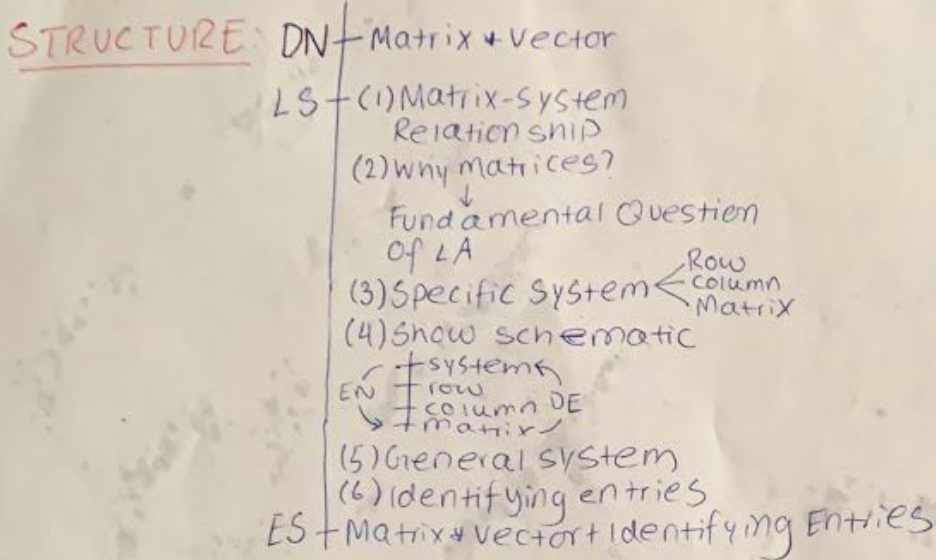 STRUCTURE: DN Matrix * Vector
LS (1) Matrix-System
Relationship
(2) Why matrices?
↓
Fundamental Question
Of LA
(3) Specific System < Row
Column
Matrix
(4) Show schematic
systems
EN row
column DE
matrix
(5) General system
(6) Identifying entries
ES Matrix * Vector + Identifying Entries